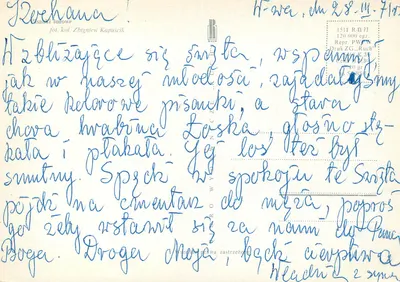 Kochana
W-wa, dn 28.III-71r
fot. kol. Zbigniew Kapuścik
W zbliżające się święta, wspomnij
jak w naszej młodości, zajadałyśmy
takie kolorowe pisanki, a stara
chora hrabina Łoska, głośno stę-
kała i płakała. Jej los też był
smutny. Spędź w spokoju te Święta
pójdź na cmentarz do męża, poproś
go żeby wstawił się za nami do Pana
Boga. Droga Moja, bądź cierpliwa
Władzia z synem